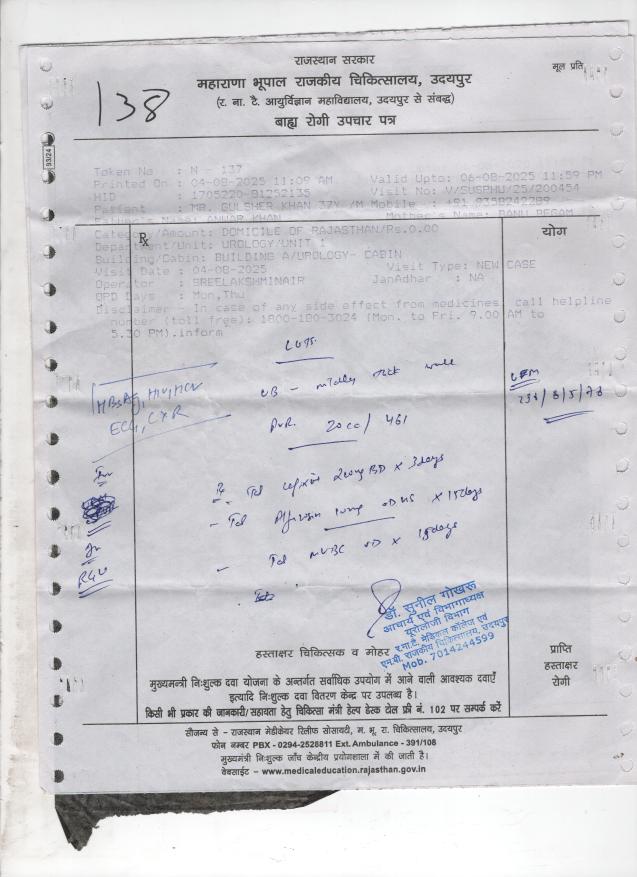 राजस्थान सरकार
मूल प्रति
महाराणा भूपाल राजकीय चिकित्सालय, उदयपुर
(र. ना. टै. आयुर्विज्ञान महाविद्यालय, उदयपुर से संबद्ध)
बाह्य रोगी उपचार पत्र
138
93/24
Token No : N - 137
Printed On : 04-08-2025 11:09 AM Valid Upto: 06-08-2025 11:59 PM
HID : Visit No: V/SUSPHU/25/200454
Patient : MR. GULSHER KHAN 37Y /M Mobile : +91
Name: ANWAR KHAN Mother's Name: BANU BEGAM
Category/Amount: DOMICILE OF RAJASTHAN/Rs.0.00
Department/Unit: UROLOGY/UNIT 1
Building/Cabin: BUILDING A/UROLOGY- CABIN
Visit Date : 04-08-2025 Visit Type: NEW CASE
Operator : SREELAKSHMINAIR JanAadhar : NA
OPD Days : Mon,Thu
Disclaimer - In case of any side effect from medicines, call helpline
number (toll free): 1800-180-3024 (Mon. to Fri. 9.00 AM to
5.30 PM).inform
Rx
योग
LUTS
UB - mildly thick wall
PVR 20cc / 461
HBsAg, HIV, HCV
ECG, CXR
UFM
Rx Tab cefixime 200mg BD x 3days
- Tab 10mg OD HS x 15days
- Tab MVBC OD x 15days
RGU
डॉ. सुनील गोखरू
आचार्य एवं विभागाध्यक्ष
यूरोलॉजी विभाग
र.ना.टै. मेडिकल कॉलेज एवं
एम.बी. राजकीय चिकित्सालय, उदयपुर
Mob. 7014244599
हस्ताक्षर चिकित्सक व मोहर
प्राप्ति
हस्ताक्षर
रोगी
मुख्यमन्त्री निःशुल्क दवा योजना के अन्तर्गत सर्वाधिक उपयोग में आने वाली आवश्यक दवाएँ
इत्यादि निःशुल्क दवा वितरण केन्द्र पर उपलब्ध है।
किसी भी प्रकार की जानकारी/सहायता हेतु चिकित्सा मंत्री हेल्प डेस्क टोल फ्री नं. 102 पर सम्पर्क करें
सौजन्य से - राजस्थान मेडीकेयर रिलीफ सोसायटी, म. भू. रा. चिकित्सालय, उदयपुर
फोन नम्बर PBX - 0294-2528811 Ext. Ambulance - 391/108
मुख्यमन्त्री निःशुल्क जाँच केन्द्रीय प्रयोगशाला में की जाती है।
वेबसाईट - www.medicaleducation.rajasthan.gov.in